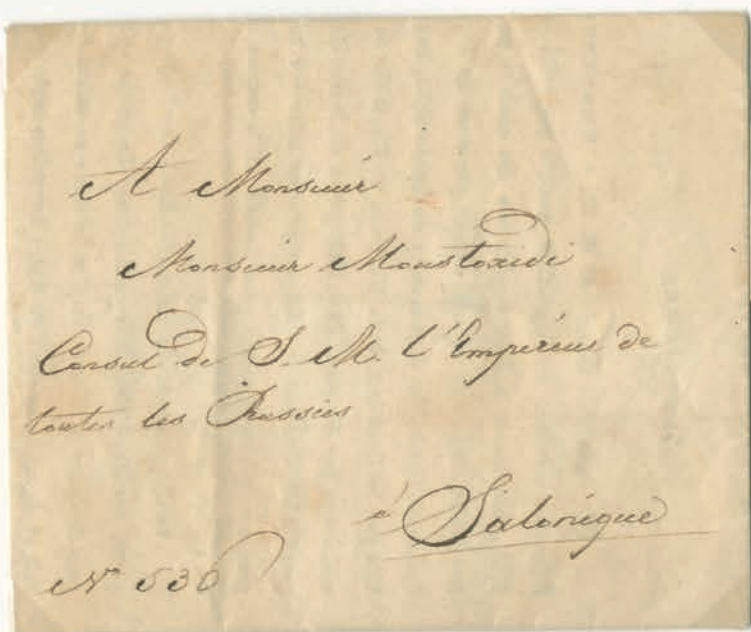 A Monsieur
Monsieur Moustoxidi
Consul de S. M. l'Empereur de
toutes les Russies
à Salonique
N° 536